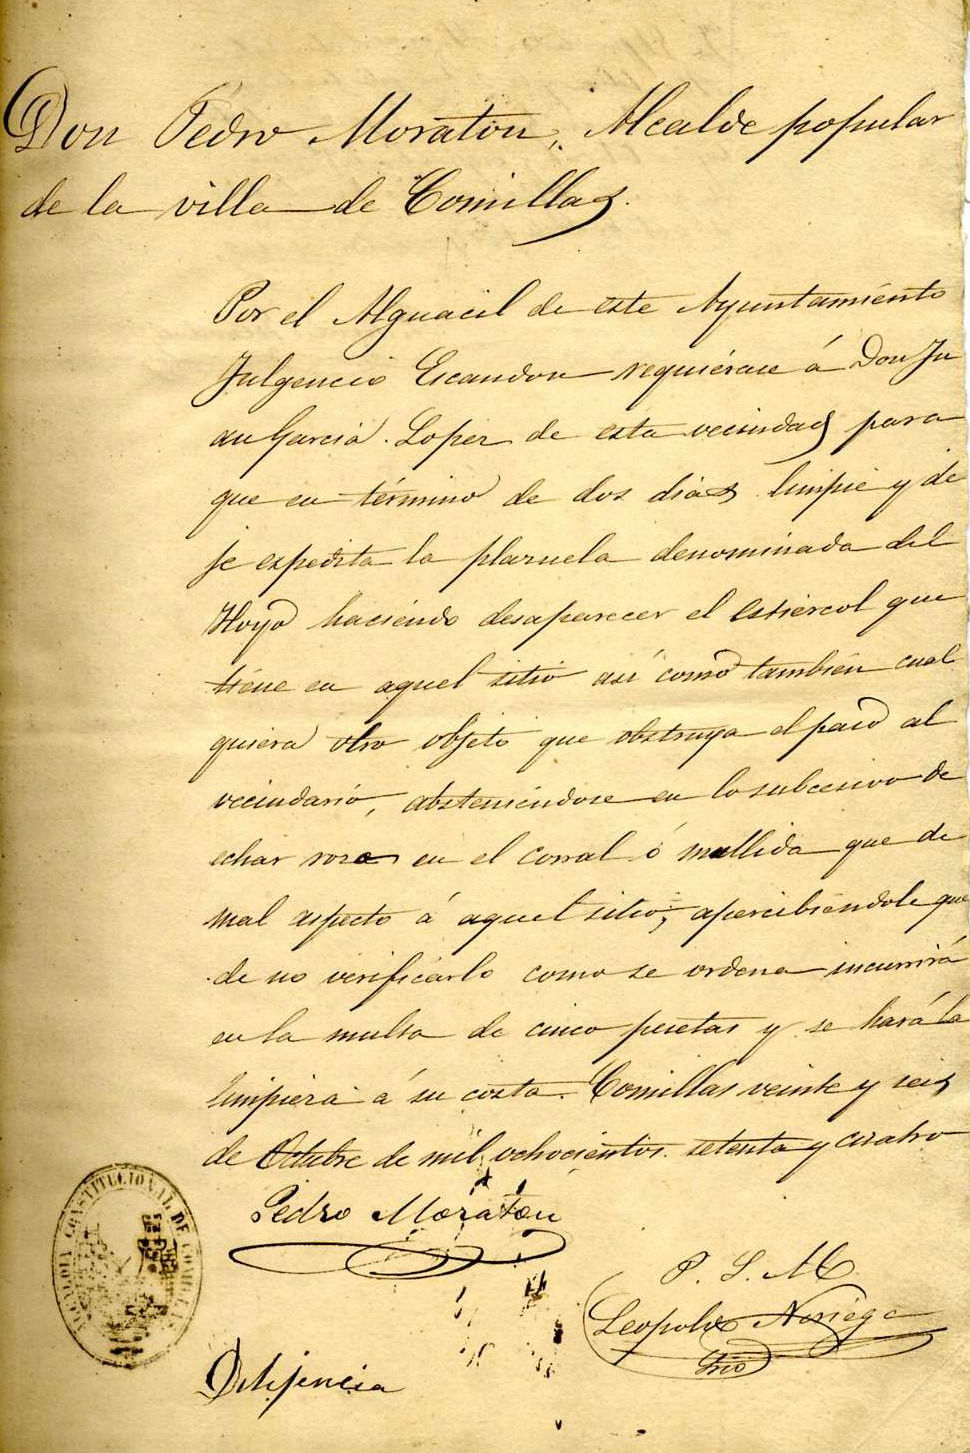 Don Pedro Moraton, Alcalde popular
de la villa de Comillas.
Por el Alguacil de este Ayuntamiento
Fulgencio Escandon requiérase á Don Ju
an Garcia Lopez de esta vecindad para
que en término de dos dias limpie y de
je expedita la plazuela denominada del
Hoyo haciendo desaparecer el estiércol que
tiene en aquel sitio así como también cual
quiera otro objeto que obstruya el paso al
vecindario, absteniéndose en lo subcesivo de
echar rozo en el corral ó mullida que de
mal aspecto á aquel sitio; apercibiéndole que
de no verificarlo como se ordena incurrirá
en la multa de cinco pesetas y se hará la
limpieza á su costa. Comillas veinte y seis
de Octubre de mil ochocientos setenta y cuatro
Pedro Moraton
ALCALDIA CONSTITUCIONAL DE COMILLAS
P. S. M.
Leopoldo Noriega
Srio
Dilijencia